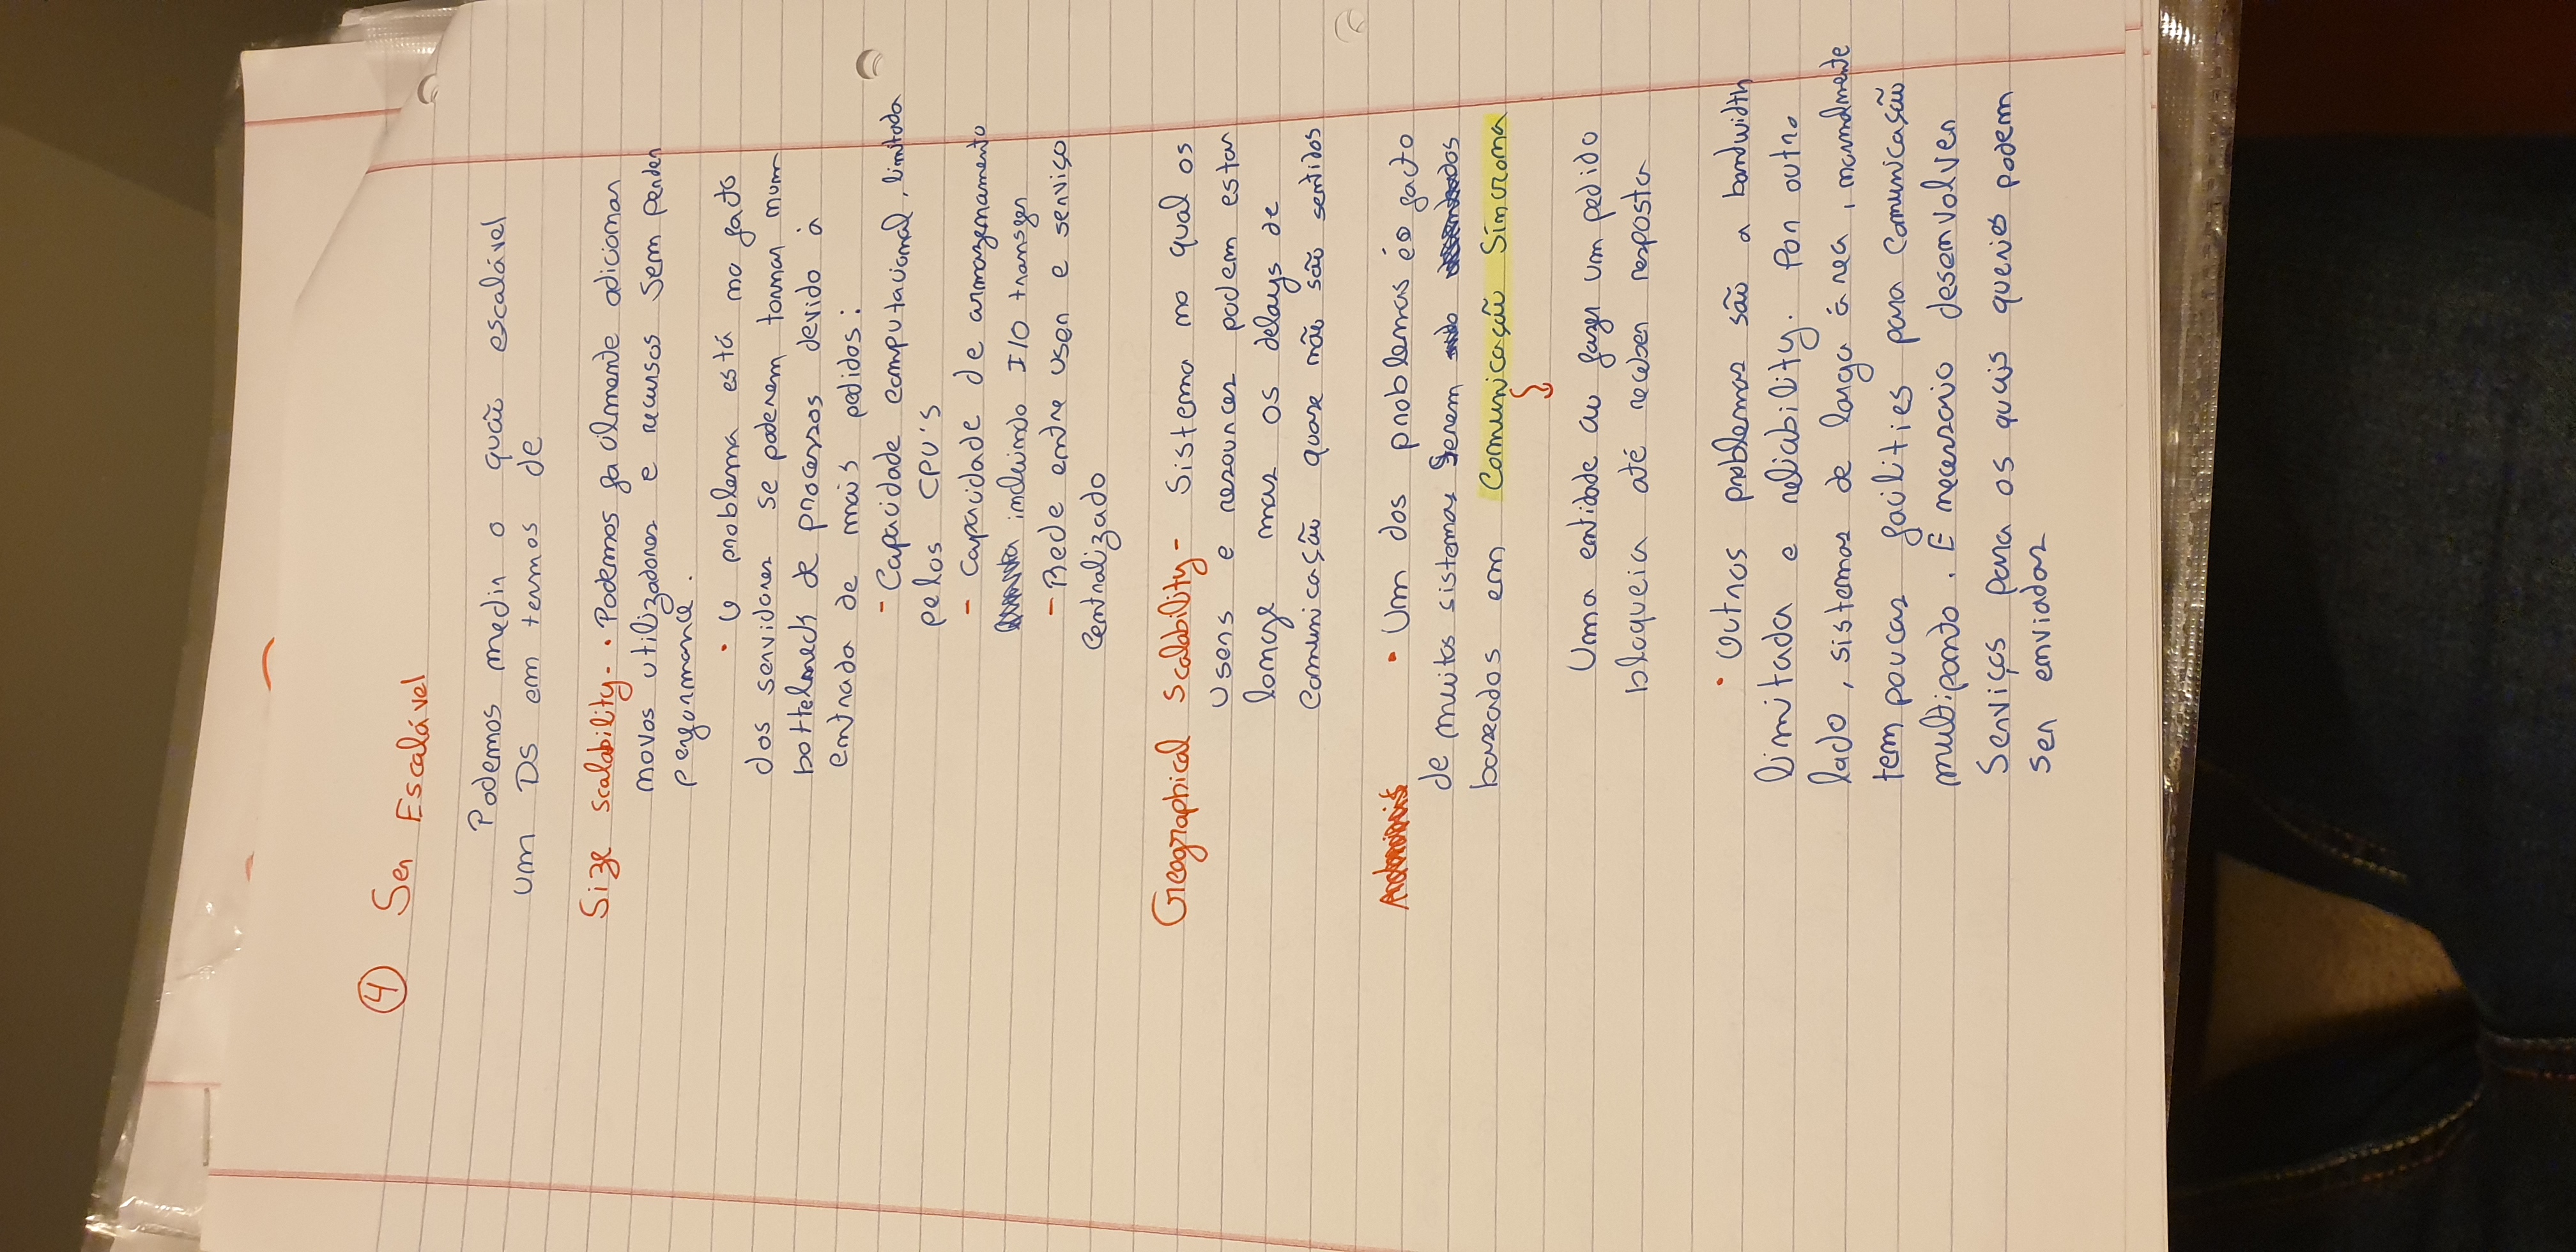 4 Ser Escalável
Podemos medir o quão escalável
um DS em termos de
Size scalability - • Podemos facilmente adicionar
novos utilizadores e recursos sem perder
performance.
• O problema está no facto
dos servidores se poderem tornar num
bottelneck de processos devido à
entrada de mais pedidos:
- Capacidade computacional, limitada
pelos CPU's
- Capacidade de armazenamento
incluindo I/O transfer
- Rede entre user e serviço
centralizado
Geographical Scalability - Sistema no qual os
users e resources podem estar
longe mas os delays de
comunicação quase não são sentidos
• Um dos problemas é o facto
de muitos sistemas serem
baseados em Comunicação Síncrona
Uma entidade ao fazer um pedido
bloqueia até receber resposta
• Outros problemas são a bandwidth
limitada e reliability. Por outro
lado, sistemas de larga área, normalmente
tem poucas facilities para comunicação
multiponto. É necessario desenvolver
Serviços para os quais queries podem
ser enviadas